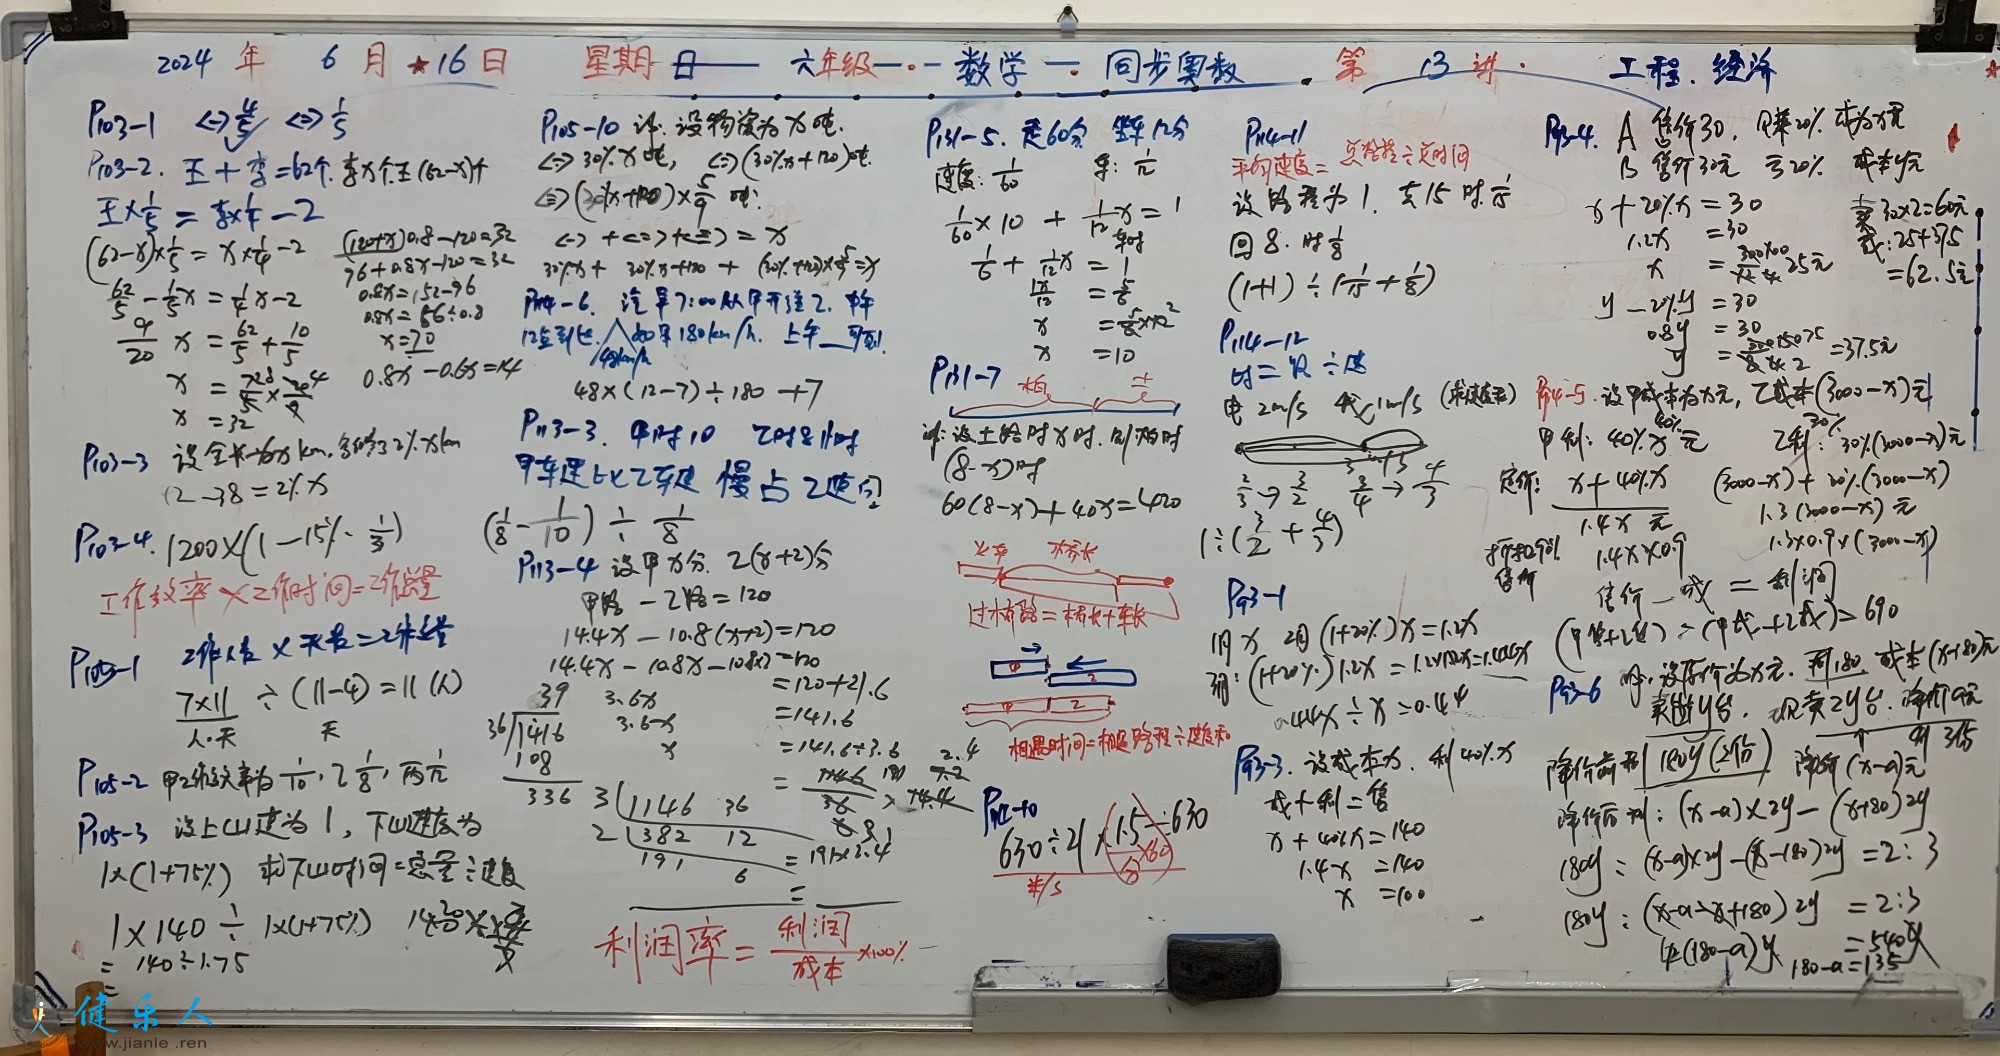 2024 年 6 月 16 日 星期日 六年级 数学 同步奥数 第 13 讲 工程. 经济
P103-1 <=> 4/5 <=> 1/5
P103-2. 王 + 李 = 62个. 李x个王(62-x)个
王×1/5 = 李×1/4 - 2
(62-x)×1/5 = x×1/4-2
62/5 - 1/5x = 1/4x-2
9/20 x = 62/5 + 10/5
x = 32
(120+x)0.8-120=32
96+0.8x-120=32
0.8x=152-96
0.8x=56÷0.8
x=70
0.8x-0.6x=14
P103-3 设全长为x km.
12-38=2%x
P103-4. 1200×(1-15%-1/3)
工作效率×工作时间=工作总量
工作人数×天数=工作总量
P105-1 7×11 ÷(11-4)=11(人)
人·天 天
P105-2 甲工作效率为1/10, 乙1/8, 两
P105-3 设上山速为1, 下山速度为
1×(1+75%) 求下山时间=总量÷速度
1×140÷1×(1+75%)
= 140÷1.75
=
P105-10 详. 设物资为x吨.
30%x吨, (30%x+120)吨.
(30%x+120)×5/9 吨.
30%x+ 30%x+120 + (30%x+120)×5/9=x
P114-6. 汽早7:00从甲开往乙, 中午
12点到达. 如果180km/h. 上午__可到.
48km/h
48×(12-7)÷180+7
P113-3. 甲时10 乙时8小时
甲车速比乙车速 慢占乙速的
(1/8-1/10)÷1/8
P113-4 设甲x分. 乙(x+2)分
甲路-乙路=120
14.4x-10.8(x+2)=120
14.4x-10.8x-10.8×2=120
3.6x =120+21.6
3.6x =141.6
x =141.6÷3.6
39
36 1416
108
336
3 1146 36
2 382 12
191 6
= 191×2.4
=
利润率=利润/成本×100%
P131-5. 走60分 坐车12分
速度: 1/60 车: 1/12
1/60×10 + 1/12x=1
车时
1/6+1/12x=1
1x/12 =5/6
x =5/6×12
x =10
P131-7
柏 土
详: 设土路时x时. 则柏时
(8-x)时
60(8-x)+40x=420
火车 桥长
过桥路=桥长+车长
甲 乙
相遇时间=相遇路程÷速度和
630÷21×1.5÷630
米/s
P114-11
平均速度=总路程÷总时间
设路程为1. 去15时1/15
回8. 时1/8
(1+1)÷(1/15+1/8)
P114-12
时=路÷速
电2m/s 代1m/s (求速度)
2/3→3/2 3/4→4/3
1÷(3/2+4/3)
P93-1
1月x 2月(1+20%)x=1.2x
3月:(1+20%)1.2x=1.2×1.2x=1.44x
0.44x÷x=0.44
P93-3. 设成本为. 利40%x
成+利=售
x+40%x=140
1.4x =140
x =100
P93-4. A 售价30. 赚20% 成为x元
B 售价30元 亏20% 成本y元
x+20%x=30
1.2x =30
x = 25元
y-20%y=30
0.8y =30
y = =37.5元
卖30×2=60元
成:25+37.5
=62.5元
P94-5. 设甲成本为x元, 乙成本(3000-x)元
甲利: 40%x元 乙利: 30%(3000-x)元
定价: x+40%x (3000-x)+30%(3000-x)
1.4x元 1.3(3000-x)元
打折90% 1.4x×0.9 1.3×0.9×(3000-x)
售价
售价-成=利润
(甲售+乙售)-(甲成+乙成)=690
P93-6 详. 设原价为x元. 利180. 成本(x-180)元
卖出y台. 现卖2y台. 降价a元
降价前利180y(2份) 降价(x-a)元
降价后利: (x-a)×2y-(x-180)2y
180y:(x-a)×2y-(x-180)2y=2:3
180y:(x-a-x+180)2y=2:3
4(180-a)y=540y
180-a=135
健乐人
www.jianle.ren